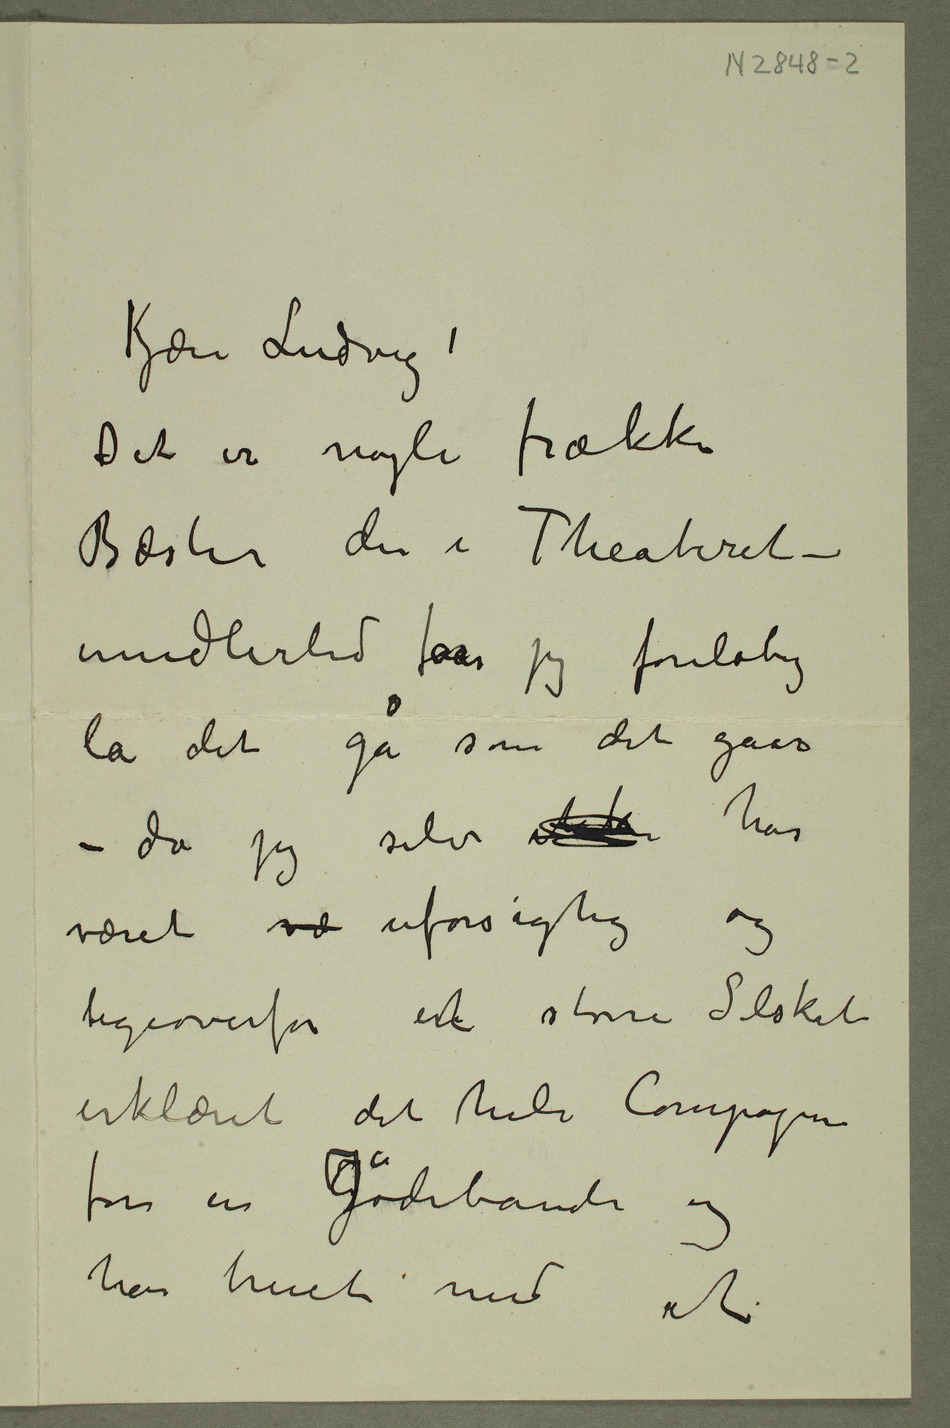 N 2848-2
Kjære Ludvig!
Det er nogle frække
Bæster der i Theateret –
imidlertid faar jeg foreløbig
la det gå som det gaar
– da jeg selv ikke har
været væ uforsigtig og
ligeoverfor et større Selskab
erklæret det hele Compagni
for en Jødebande og
har truet med at